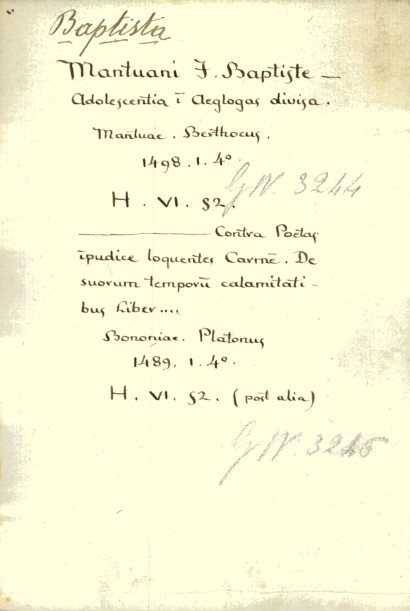 Baptista
Mantuani F. Baptiste —
Adolescentia ī Aeglogas divisa.
Mantuae. Berthocus.
1498. 1. 4º
GW. 3244
H. VI. 52.
——— Contra Poetas
īpudice loquentes Carmē. De
suorum temporū calamitati-
bus Liber....
Bononiae. Platonus
1489. 1. 4º.
H. VI. 52. (post alia)
GW. 3245